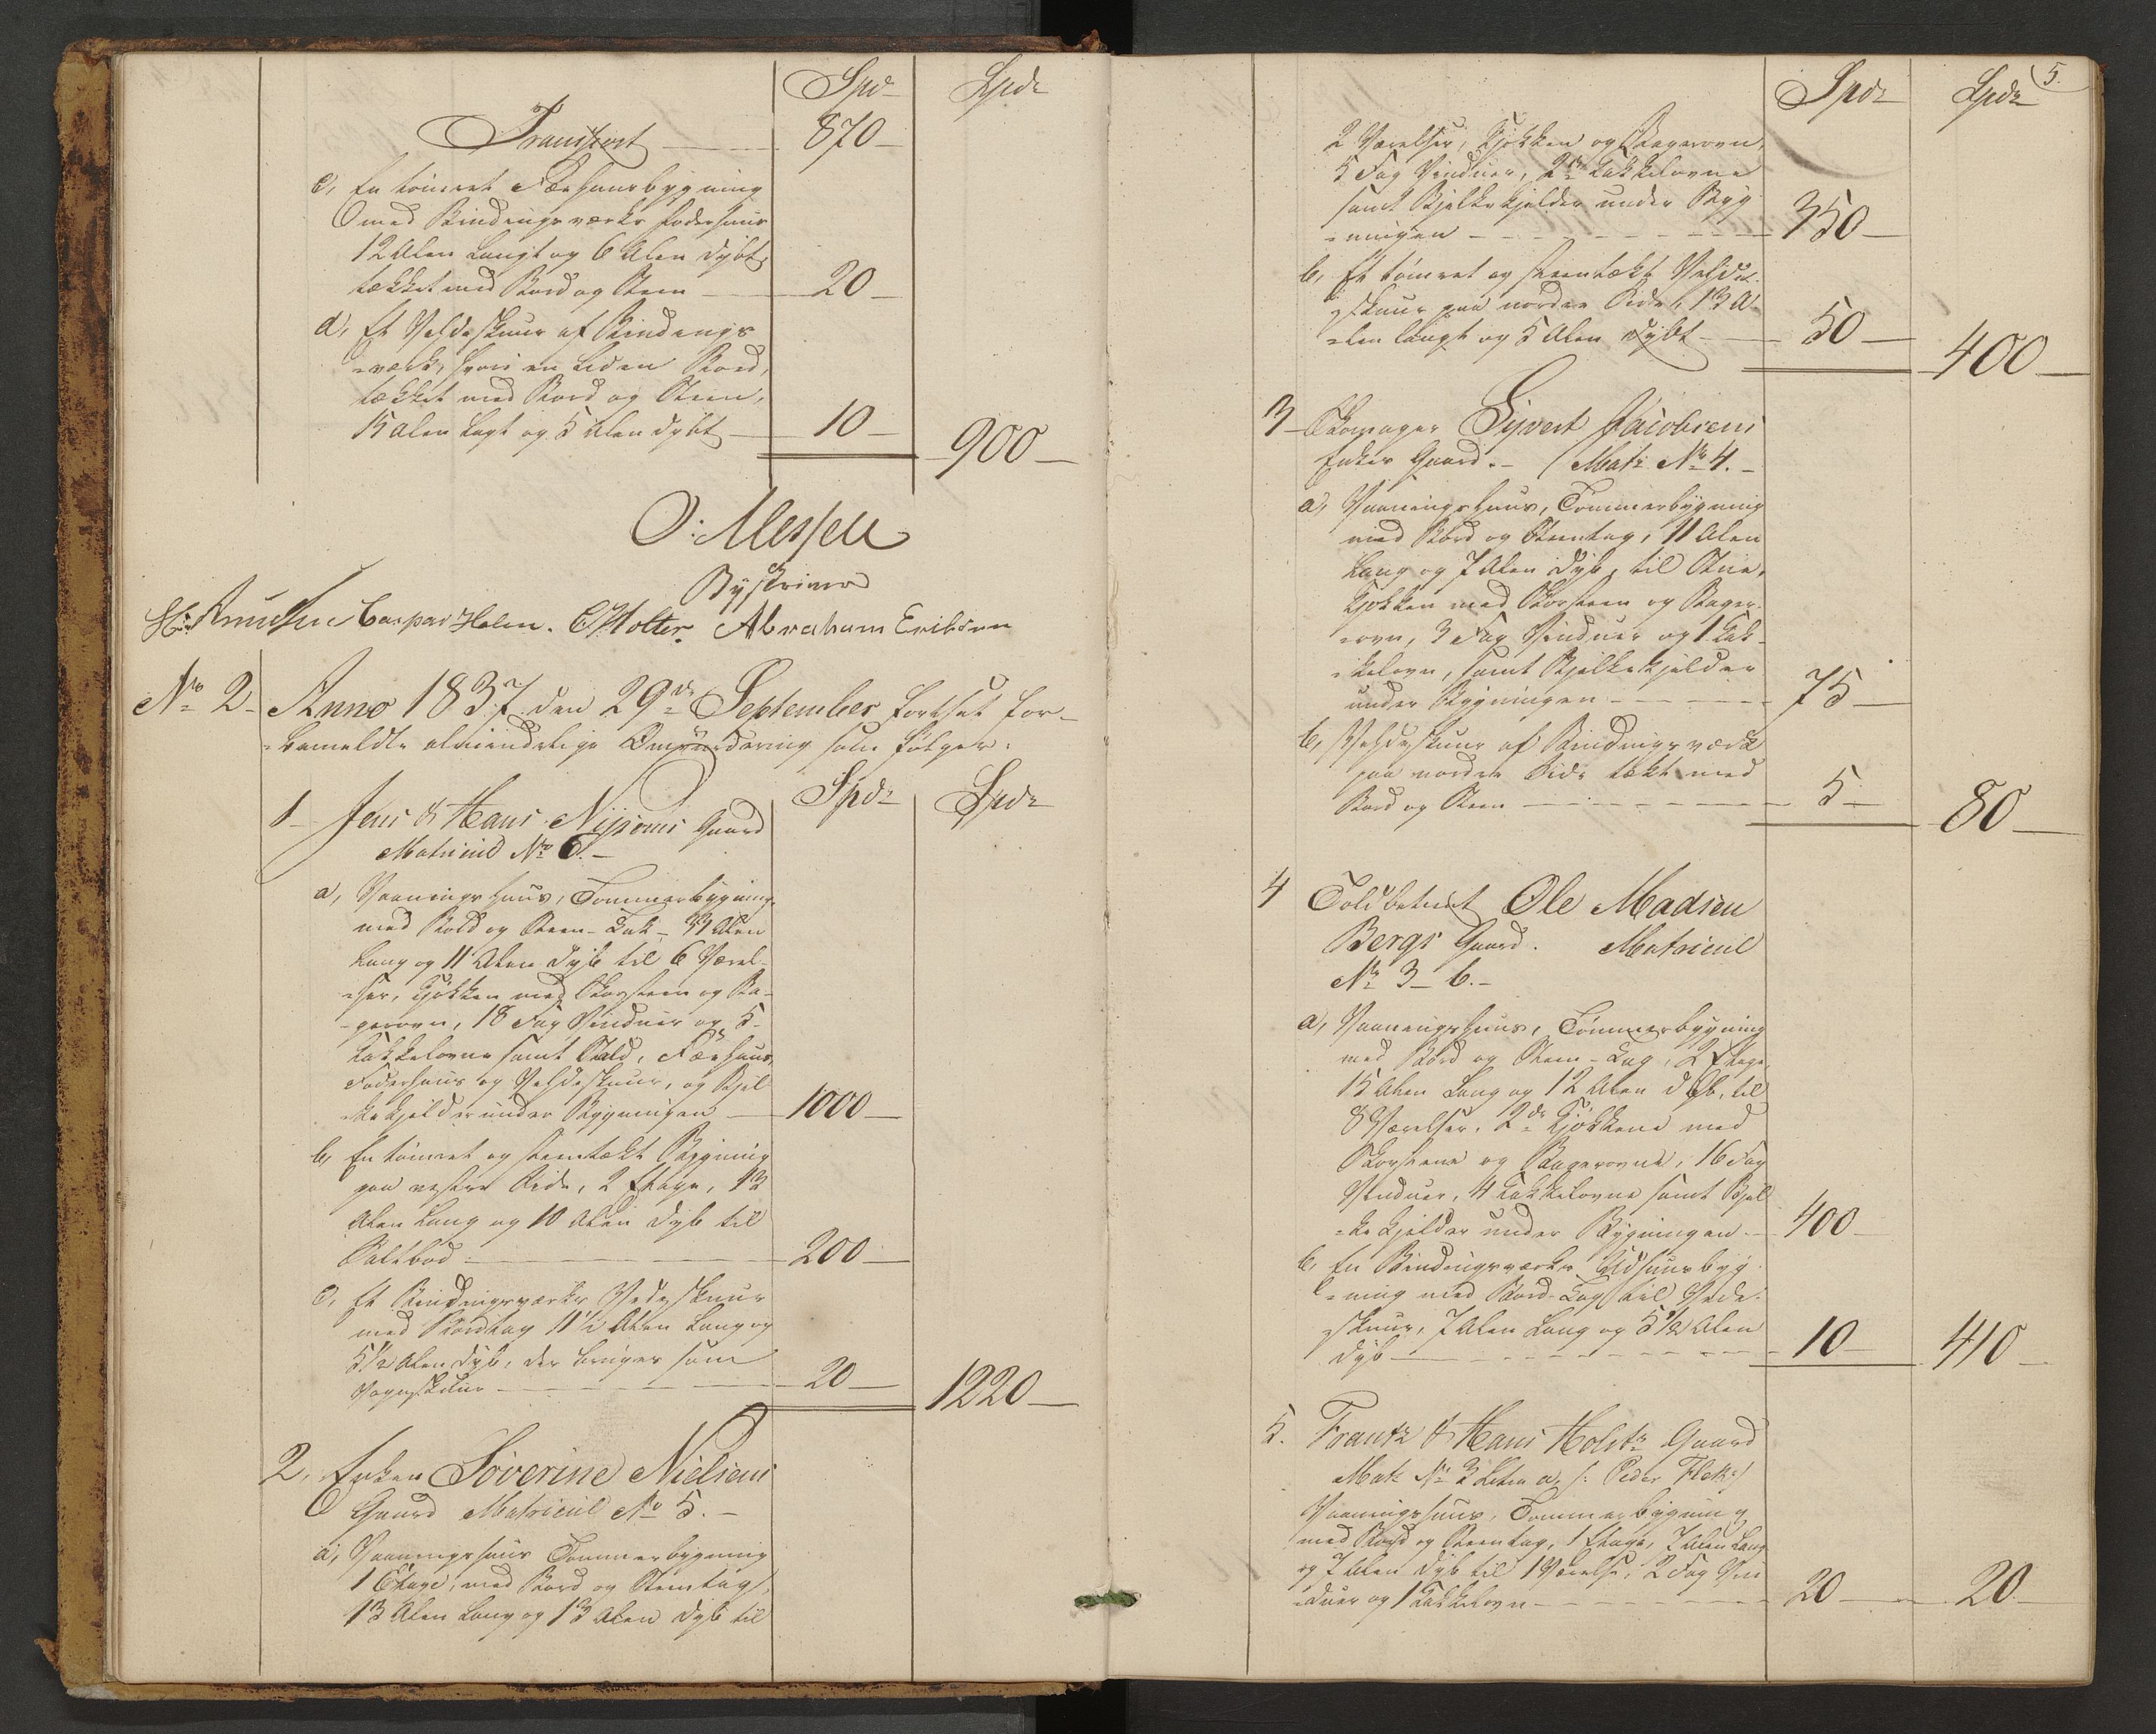 Spd Spdr
Transport 870
c, En tömret Fæehuusbygning
med Bindingsværks foderhuus
12 Alen Langt og 6 Alen dybt,
tækket med Bord og Steen 20
d, Et Veldeskuur af Bindings
værk, hvori en liden Boed,
tækket med Bord og Steen,
15 Alen Lagt og 5 Alen dybt 10 900
O: Messell
Byskriver
Knudsen Caspar Holm. Holter Abraham Eriksen
No 2 Anno 1837 den 29de September fortsat for-
bemeldte almindelige Omvurdering som følger:
Spdr Spdr
1 Jens & Hans Nysoms Gaard
Matricul No 6.
a, Vaaningshuus, Tömmerbygning
med Bord og Steen-Tak, 31 Alen
Lang og 11 Alen dyb til 6 Værel-
ser, Kjökken med Skorsteen og Ba-
gerovn, 18 Fag Vinduer og 5
Kakkelovne samt Stald, Fæehuus,
Foderhuus og Veldeskuur, og Bjel
kekjelder under Bygningen 1000
b, En tömret og steentækt Bygning
paa vestre Side, 2 Etage, 13
Alen Lang og 10 Alen dyb til
Saltbod 200
c, Et Bindingsværks Vedeskuur
med Bordtag 11½ Alen Lang og
5½ Alen dyb, der bruges som
Vognskuur 20 1220
2, Enken Söverine Nielsens
Gaard Matricul No 5.
a, Vaaningshuus Tömmerbygning
1 Etage, med Bord og Steentag,
13 Alen Lang og 13 Alen dyb til
5.
Spdr Spdr
2 Værelser, Kjökken og Bagerovn,
5 Fag Vinduer, 2de Kakkelovne
samt Bjelkekjelder under Byg
ningen 350
b, Et tömret og steentækt Velde
skuur paa nordre Side, 13 A-
len langt og 5 Alen dybt 50 400
3 Skomager Syvert Jacobsens
Enkes Gaard. Matr No 4.
a, Vaaningshuus, Tömmerbygning
med Bord og Steentag, 11 Alen
Lang og 7 Alen dyb, til Stue,
Kjökken med Skorsteen og Bager
ovn, 3 Fag Vinduer og 1 Kak-
kelovn, samt Bjelkekjelder
under Bygningen 75
b, Veldeskuur af Bindingsværk
paa nordre Side tækt med
Bord og Steen 5 80
4 Toldbetient Ole Madsen
Bergs Gaard. Matricul
No 3 b.
a, Vaaningshuus, Tömmerbygning
med Bord og Steen-Tag, 2 Etage
15 Alen Lang og 12 Alen dyb, til
8 Værelser, 2de Kjökkene med
Skorstene og Bagerovne, 16 Fag
Vinduer, 4 Kakkelovne samt Bjel
kekjelder under Bygningen 400
b, En Bindingsværks Udhuusbyg
ning med Bord-Tag til Vede-
skuur, 7 Alen Lang og 5½ Alen
dyb 10 410
5. Frantz & Hans Holstr Gaard
Matr No 3 Litra a, /: Peder Flek:/
Vaaningshuus, Tömmerbygning
med Bord og Steentag, 1 Etage, 7 Alen Lang
og 7 Alen dyb til 1 Værelse, 2 Fag Vin
duer og 1 Kakkelovn 20 20